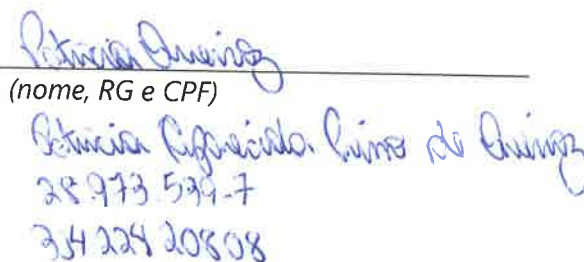 Patricia Queiroz
(nome, RG e CPF)
Patricia Aparecida de Queiroz
28.973.539-7
34224420808